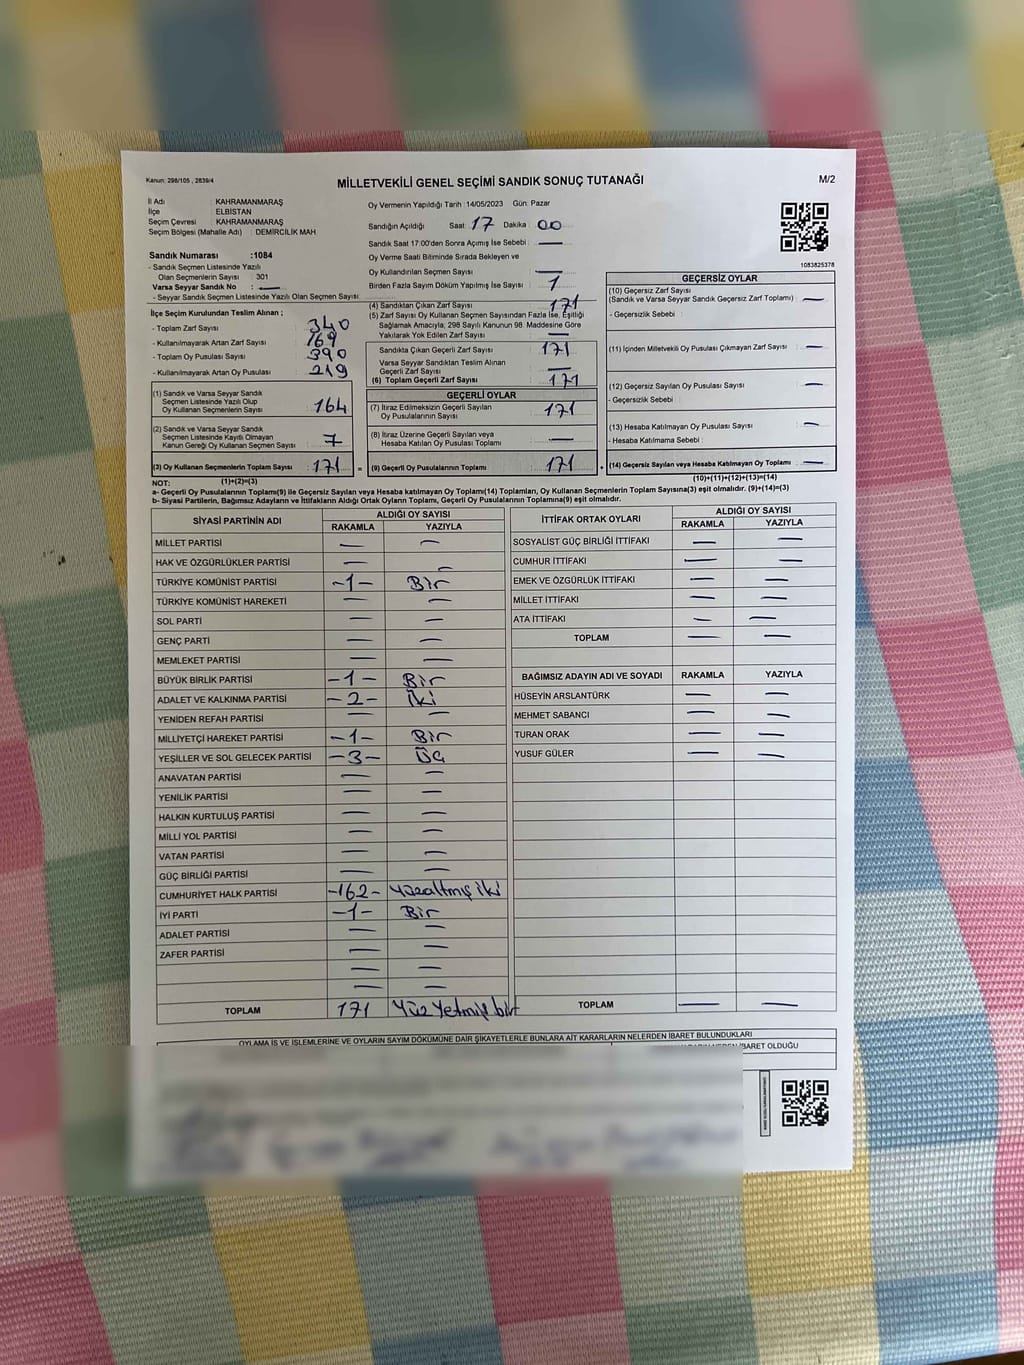 Kanun: 298/105 , 2839/4
MİLLETVEKİLİ GENEL SEÇİMİ SANDIK SONUÇ TUTANAĞI
M/2
İl Adı : KAHRAMANMARAŞ
İlçe : ELBİSTAN
Seçim Çevresi : KAHRAMANMARAŞ
Seçim Bölgesi (Mahalle Adı) : DEMİRCİLİK MAH.
Oy Vermenin Yapıldığı Tarih :14/05/2023 Gün: Pazar
Sandığın Açıldığı Saat: 17 Dakika : 00
Sandık Saat 17:00'den Sonra Açımış İse Sebebi : —
Oy Verme Saati Bitiminde Sırada Bekleyen ve
Oy Kullandırılan Seçmen Sayısı : —
Birden Fazla Sayım Döküm Yapılmış İse Sayısı : 1
1083825378
Sandık Numarası :1084
- Sandık Seçmen Listesinde Yazılı
Olan Seçmenlerin Sayısı : 301
Varsa Seyyar Sandık No : —
- Seyyar Sandık Seçmen Listesinde Yazılı Olan Seçmen Sayısı:
İlçe Seçim Kurulundan Teslim Alınan ;
- Toplam Zarf Sayısı : 340
- Kullanılmayarak Artan Zarf Sayısı : 169
- Toplam Oy Pusulası Sayısı : 390
- Kullanılmayarak Artan Oy Pusulası : 219
(1) Sandık ve Varsa Seyyar Sandık
Seçmen Listesinde Yazılı Olup
Oy Kullanan Seçmenlerin Sayısı : 164
(2) Sandık ve Varsa Seyyar Sandık
Seçmen Listesinde Kayıtlı Olmayan
Kanun Gereği Oy Kullanan Seçmen Sayısı : 7
(3) Oy Kullanan Seçmenlerin Toplam Sayısı : 171
(1)+(2)=(3)
(4) Sandıktan Çıkan Zarf Sayısı : 171
(5) Zarf Sayısı Oy Kullanan Seçmen Sayısından Fazla İse, Eşitliği
Sağlamak Amacıyla, 298 Sayılı Kanunun 98. Maddesine Göre
Yakılarak Yok Edilen Zarf Sayısı : —
Sandıkta Çıkan Geçerli Zarf Sayısı : 171
Varsa Seyyar Sandıktan Teslim Alınan
Geçerli Zarf Sayısı : —
(6) Toplam Geçerli Zarf Sayısı : 171
GEÇERLİ OYLAR
(7) İtiraz Edilmeksizin Geçerli Sayılan
Oy Pusulalarının Sayısı : 171
(8) İtiraz Üzerine Geçerli Sayılan veya
Hesaba Katılan Oy Pusulası Toplamı : —
= (9) Geçerli Oy Pusulalarının Toplamı : 171
GEÇERSİZ OYLAR
(10) Geçersiz Zarf Sayısı
(Sandık ve Varsa Seyyar Sandık Geçersiz Zarf Toplamı) : —
- Geçersizlik Sebebi :
(11) İçinden Milletvekili Oy Pusulası Çıkmayan Zarf Sayısı : —
(12) Geçersiz Sayılan Oy Pusulası Sayısı : —
- Geçersizlik Sebebi :
(13) Hesaba Katılmayan Oy Pusulası Sayısı : —
- Hesaba Katılmama Sebebi :
+ (14) Geçersiz Sayılan veya Hesaba Katılmayan Oy Toplamı : —
(10)+(11)+(12)+(13)=(14)
NOT:
a- Geçerli Oy Pusulalarının Toplamı(9) ile Geçersiz Sayılan veya Hesaba katılmayan Oy Toplamı(14) Toplamları, Oy Kullanan Seçmenlerin Toplam Sayısına(3) eşit olmalıdır. (9)+(14)=(3)
b- Siyasi Partilerin, Bağımsız Adayların ve İttifakların Aldığı Ortak Oyların Toplamı, Geçerli Oy Pusulalarının Toplamına(9) eşit olmalıdır.
SİYASİ PARTİNİN ADI ALDIĞI OY SAYISI
RAKAMLA YAZIYLA
MİLLET PARTİSİ — —
HAK VE ÖZGÜRLÜKLER PARTİSİ — —
TÜRKİYE KOMÜNİST PARTİSİ -1- Bir
TÜRKİYE KOMÜNİST HAREKETİ — —
SOL PARTİ — —
GENÇ PARTİ — —
MEMLEKET PARTİSİ — —
BÜYÜK BİRLİK PARTİSİ -1- Bir
ADALET VE KALKINMA PARTİSİ -2- İki
YENİDEN REFAH PARTİSİ — —
MİLLİYETÇİ HAREKET PARTİSİ -1- Bir
YEŞİLLER VE SOL GELECEK PARTİSİ -3- Üç
ANAVATAN PARTİSİ — —
YENİLİK PARTİSİ — —
HALKIN KURTULUŞ PARTİSİ — —
MİLLİ YOL PARTİSİ — —
VATAN PARTİSİ — —
GÜÇ BİRLİĞİ PARTİSİ — —
CUMHURİYET HALK PARTİSİ -162- Yüzaltmış iki
İYİ PARTİ -1- Bir
ADALET PARTİSİ — —
ZAFER PARTİSİ — —
— —
— —
TOPLAM 171 Yüz Yetmiş bir
İTTİFAK ORTAK OYLARI ALDIĞI OY SAYISI
RAKAMLA YAZIYLA
SOSYALİST GÜÇ BİRLİĞİ İTTİFAKI — —
CUMHUR İTTİFAKI — —
EMEK VE ÖZGÜRLÜK İTTİFAKI — —
MİLLET İTTİFAKI — —
ATA İTTİFAKI — —
TOPLAM — —
BAĞIMSIZ ADAYIN ADI VE SOYADI RAKAMLA YAZIYLA
HÜSEYİN ARSLANTÜRK — —
MEHMET SABANCI — —
TURAN ORAK — —
YUSUF GÜLER — —
TOPLAM — —
OYLAMA İŞ VE İŞLEMLERİNE VE OYLARIN SAYIM DÖKÜMÜNE DAİR ŞİKAYETLERLE BUNLARA AİT KARARLARIN NELERDEN İBARET BULUNDUKLARI
İBARET OLDUĞU